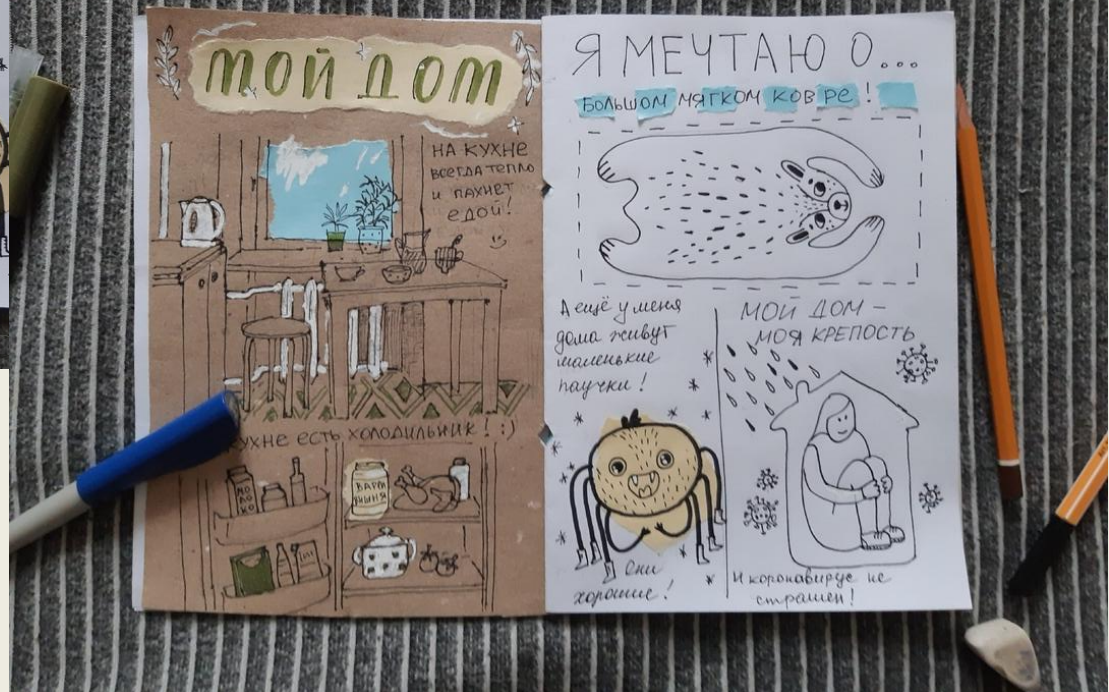 МОЙ ДОМ
НА КУХНЕ
ВСЕГДА ТЕПЛО
И ПАХНЕТ
ЕДОЙ!
УХНЕ ЕСТЬ ХОЛОДИЛЬНИК! :)
МО
ЛО
КО
ВАРЕ
ВИШНЯ
Я МЕЧТАЮ О...
БОЛЬШОМ МЯГКОМ КОВРЕ!
А ещё у меня
дома живут
маленькие
паучки!
Они
хорошие!
МОЙ ДОМ –
МОЯ КРЕПОСТЬ
И коронавирус не
страшен!